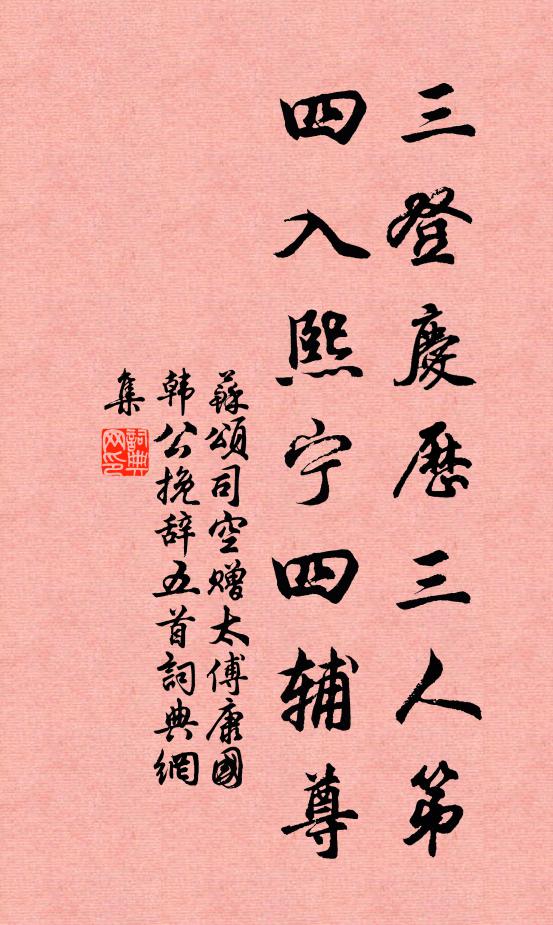 三登慶歷三人第
四入熙宁四辅尊
蘇頌司空赠太傅康國
韩公挽辞五首詞典網
集
詞典网印